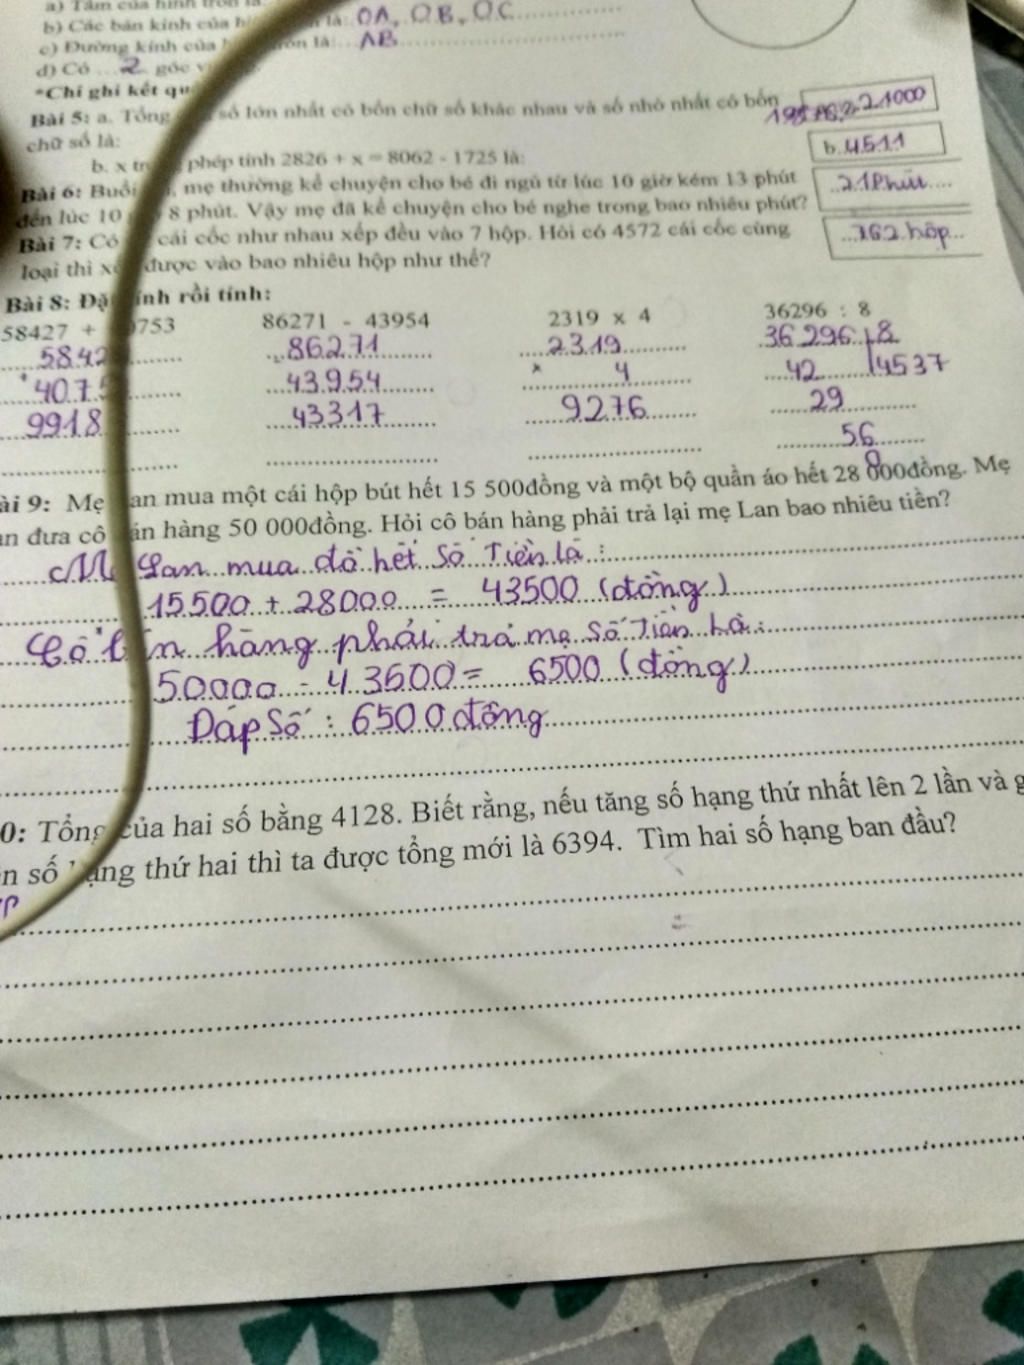 a) Tâm của hình tròn là:
b) Các bán kính của là: OA, OB, OC
c) Đường kính của tròn là: AB
d) Có 2 góc
*Chỉ ghi kết
Bài 5: a. Tổng số lớn nhất có bốn chữ số khác nhau và số nhỏ nhất có bốn
chữ số là:
b. x phép tính 2826 + x = 8062 - 1725 là:
b. 4511
Bài 6: mẹ thường kể chuyện cho bé đi ngủ từ lúc 10 giờ kém 13 phút
đến lúc 10 8 phút. Vậy mẹ đã kể chuyện cho bé nghe trong bao nhiêu phút?
21 Phút
Bài 7: Có cái cốc như nhau xếp đều vào 7 hộp. Hỏi có 4572 cái cốc cùng
loại thì được vào bao nhiêu hộp như thế?
762 hộp
Bài 8: tính rồi tính:
58427 + 0753 86271 - 43954 2319 x 4 36296 : 8
5842 86271 2319 36296 8
+ 4075 43954 x 4 42 4537
9918 43317 9276 29
56
0
ài 9: Mẹ an mua một cái hộp bút hết 15 500đồng và một bộ quần áo hết 28 000đồng. Mẹ
an đưa cô bán hàng 50 000đồng. Hỏi cô bán hàng phải trả lại mẹ Lan bao nhiêu tiền?
Mẹ Lan mua đồ hết Số Tiền là :
15500 + 28000 = 43500 (đồng)
Cô bán hàng phải trả mẹ Số Tiền Là:
50000 - 43500 = 6500 (đồng)
Đáp Số : 6500 đồng
0: Tổng của hai số bằng 4128. Biết rằng, nếu tăng số hạng thứ nhất lên 2 lần và g
n số hạng thứ hai thì ta được tổng mới là 6394. Tìm hai số hạng ban đầu?